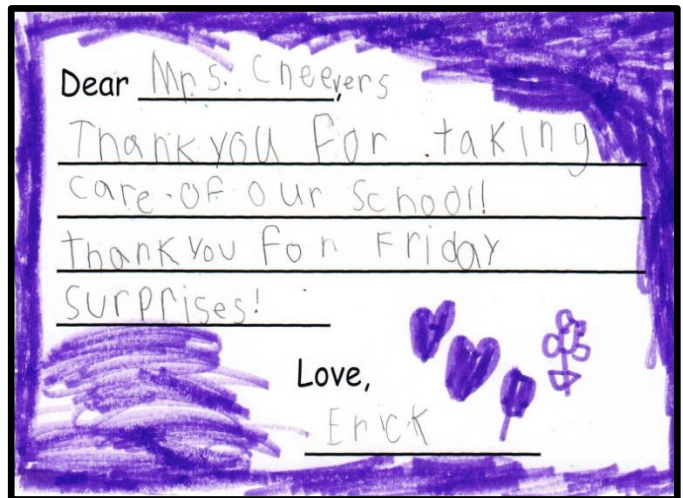 Dear Mrs. Cheevers,
Thank you For taking
care of our School!!
thank you For Friday
surprises!
Love,
Erick